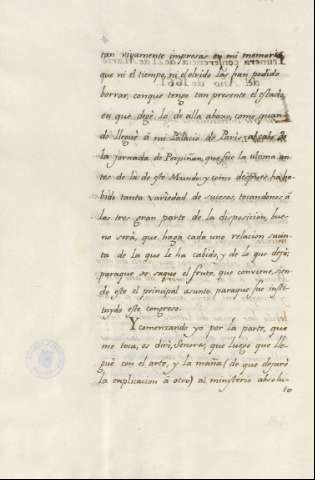 tan vivamente impresas en mi memoria
que ni el tiempo, ni el olvido las han podido
borrar, conque tengo tan presente el estado
en que dejè lo de alla abaxo, como quan-
do lleguè à mi Palacio de Paris acabada
la jornada de Perpiñan, que fue la ultima an-
tes de la de este Mundo; y como despues ha ha-
bido tanta variedad de sucesos, tocandonos à
los tres gran parte de la disposicion, bue-
no serà, que haga cada uno relacion sucin-
ta de lo que le ha cabido, y de lo que dejò;
paraque se saque el fruto, que conviene, sien-
do este el principal asunto paraque fue insti-
tuydo este congreso.
Y comenzando yo por la parte, que
me toca, os dirè, Señores, que luego que lle-
guè con el arte, y la maña (de que dejarè
la explicacion à otro) al ministerio absolu-
to